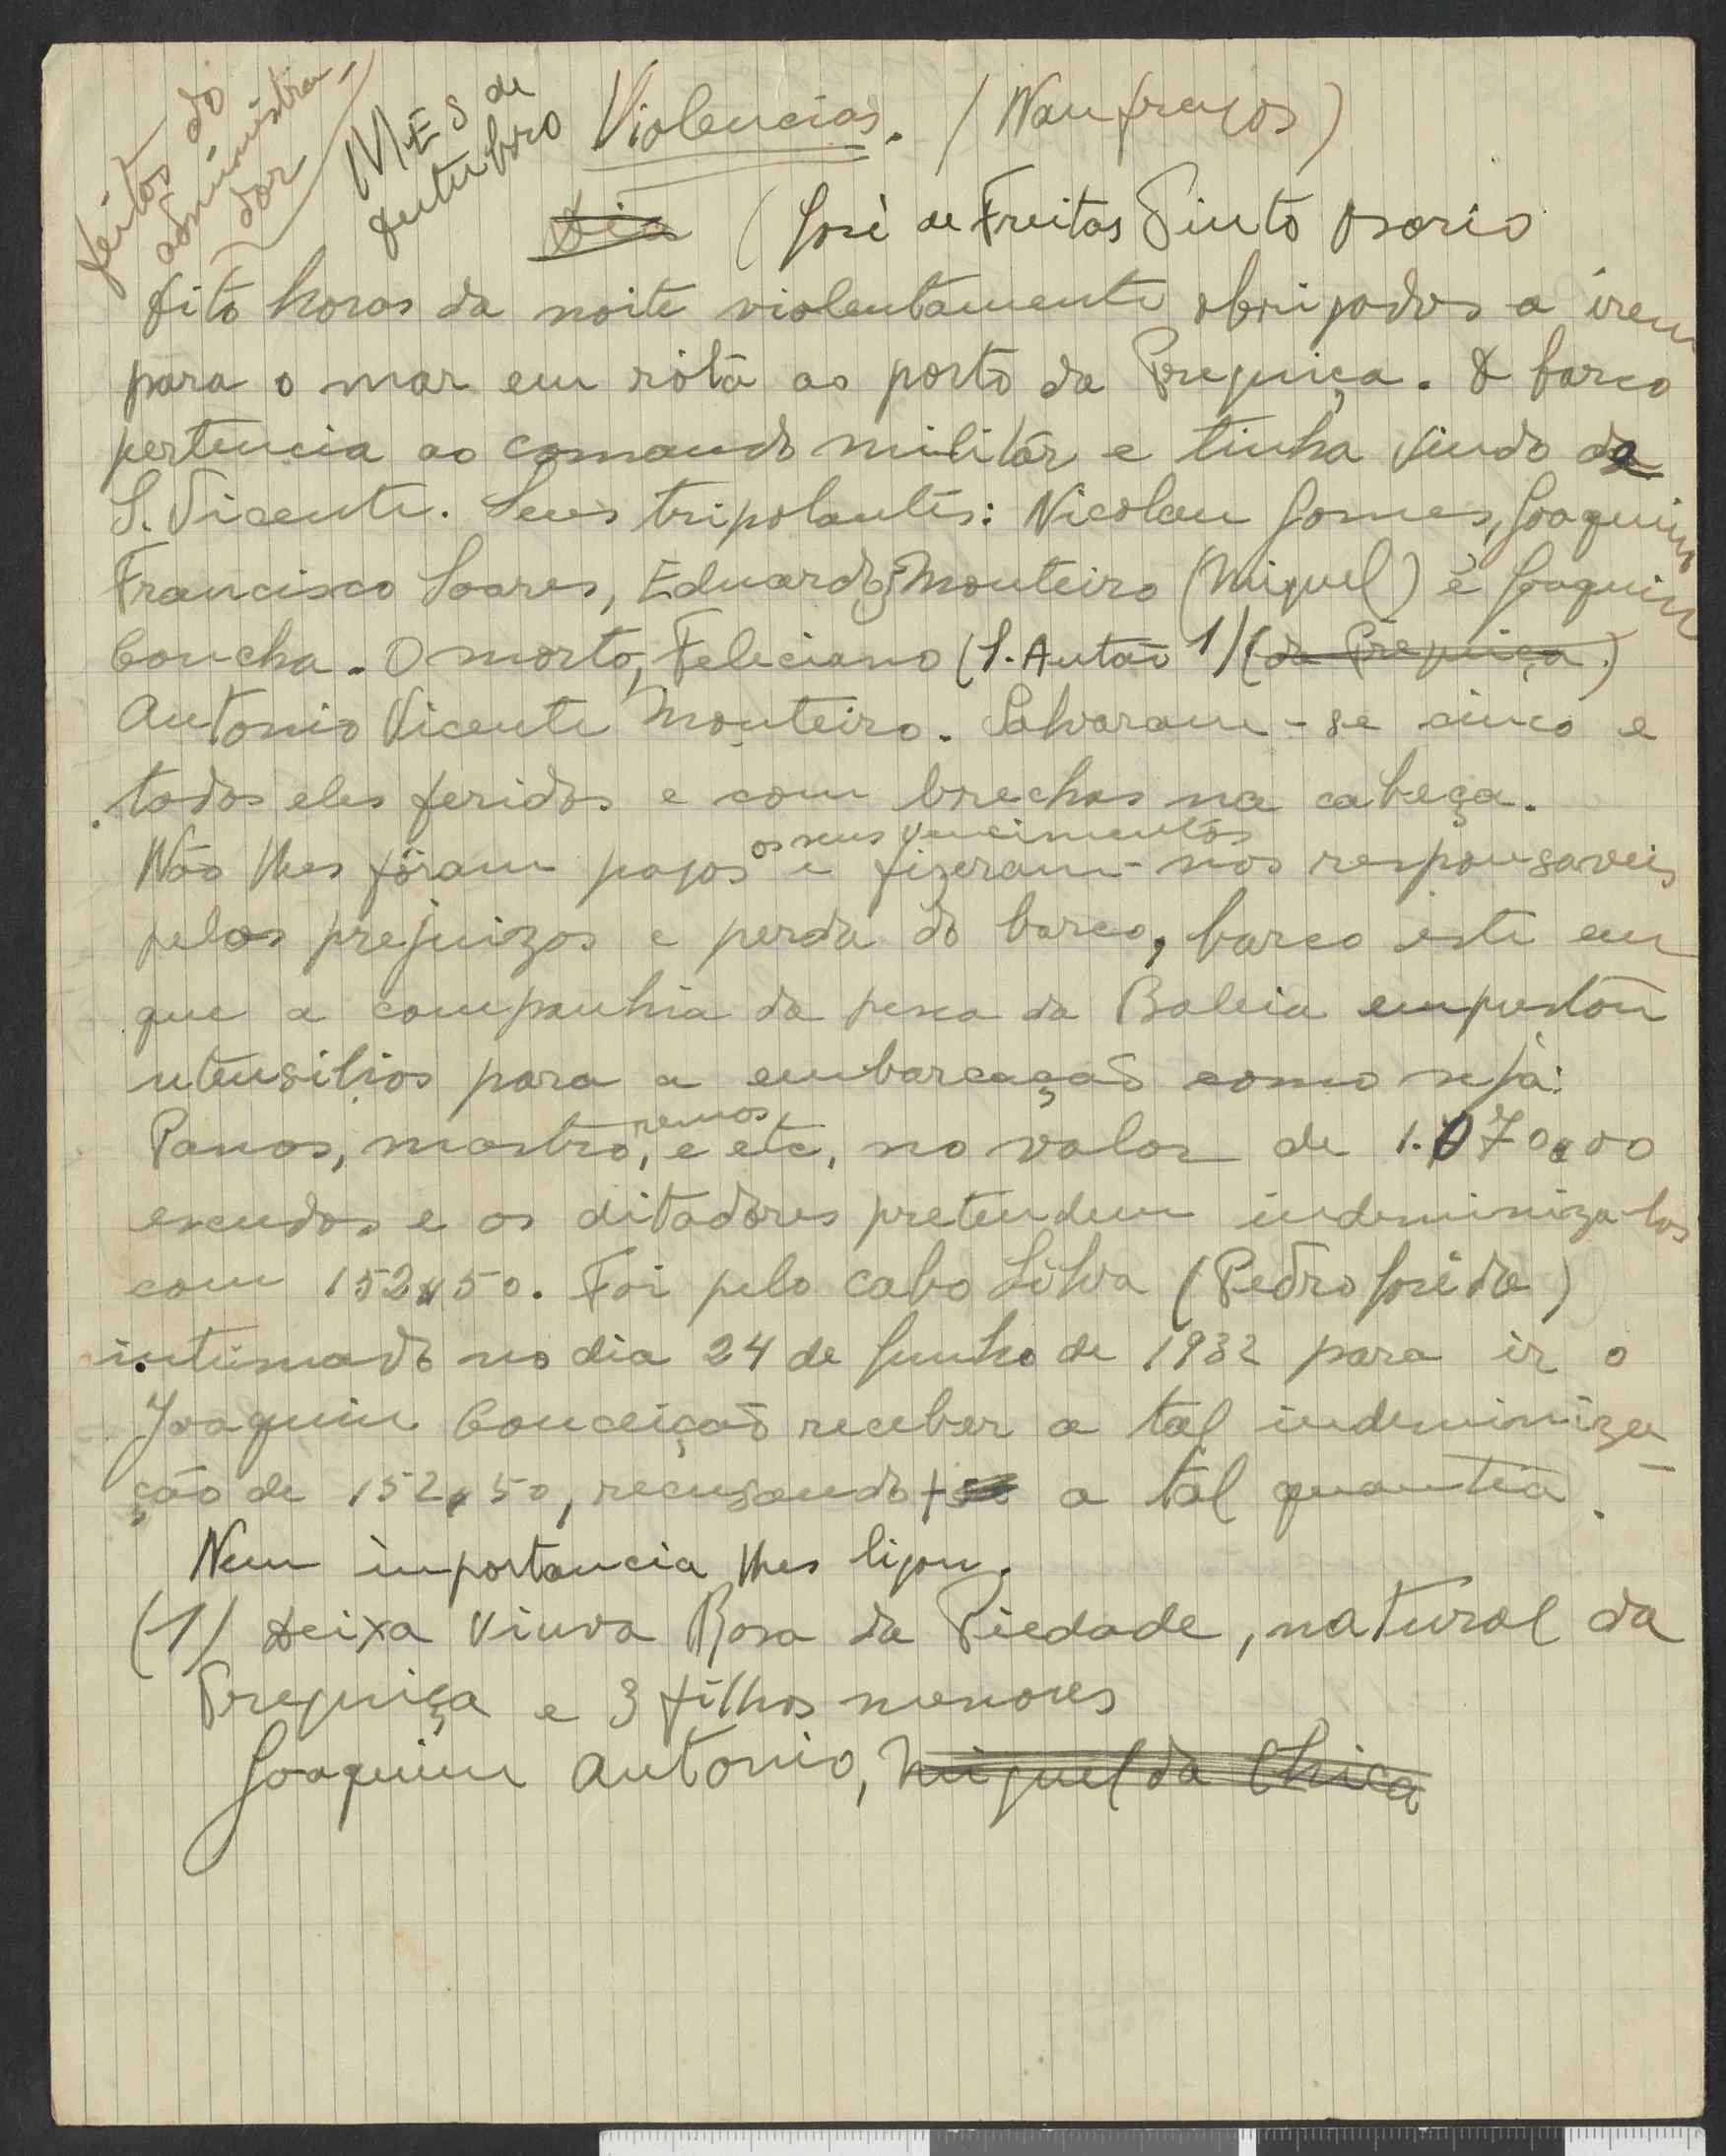 feitos do
administra-
dor
MES de
outubro
Violencias. (Naufragos)
Dia (José de Freitas Pinto Osorio
Oito horas da noite violentamente obrigados a irem
para o mar em róta ao porto da Preguiça. O barco
pertencia ao comando militar e tinha vindo de
S. Vicente. Seus tripolantes: Nicolau Gomes, Joaquim
Francisco Soares, Eduardo Monteiro (Miguel) e Joaquim
Concha. O morto, Feleciano (S. Antão 1) (da Preguiça.)
Antonio Vicente Monteiro. Salvaram-se cinco e
todos eles feridos e com brechas na cabeça.
Não lhes fôram pagos os seus vencimentos e fizeram-nos responsaveis
pelos prejuizos e perda do barco, barco este em
que a companhia da pesca da Baleia emprestou
utensilios para a embarcação como seja:
Panos, mastro, remos, e etc, no valor de 1.070$00
escudos e os ditadores pretendem indeminiza-los
com 152$50. Foi pelo cabo Silva (Pedro José da)
intimado no dia 24 de Junho de 1932 para ir o
Joaquim Conceição receber a tal indeminiza-
ção de 152$50, recusando-se a tal quantia.
Nem importancia lhes ligou.
(1) Deixa viuva Rosa da Piedade, natural da
Preguiça e 3 filhos menores
Joaquim Antonio, Miguel da Chica